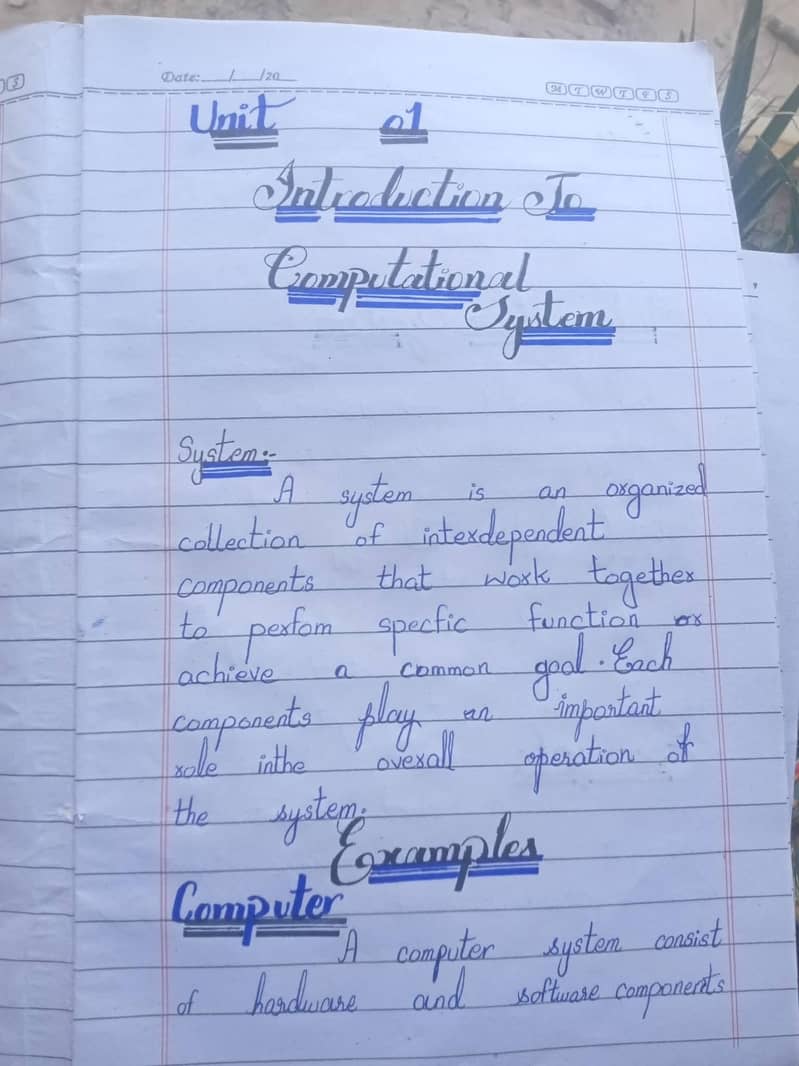 Date: / /20
M T W T F S
Unit 01
Introduction To
Computational
System
System:-
A system is an organized
collection of interdependent
components that work together
to perfom specfic function or
achieve a common goal. Each
components play an important
role inthe overall operation of
the system.
Examples
Computer
A computer system consist
of hardware and software components